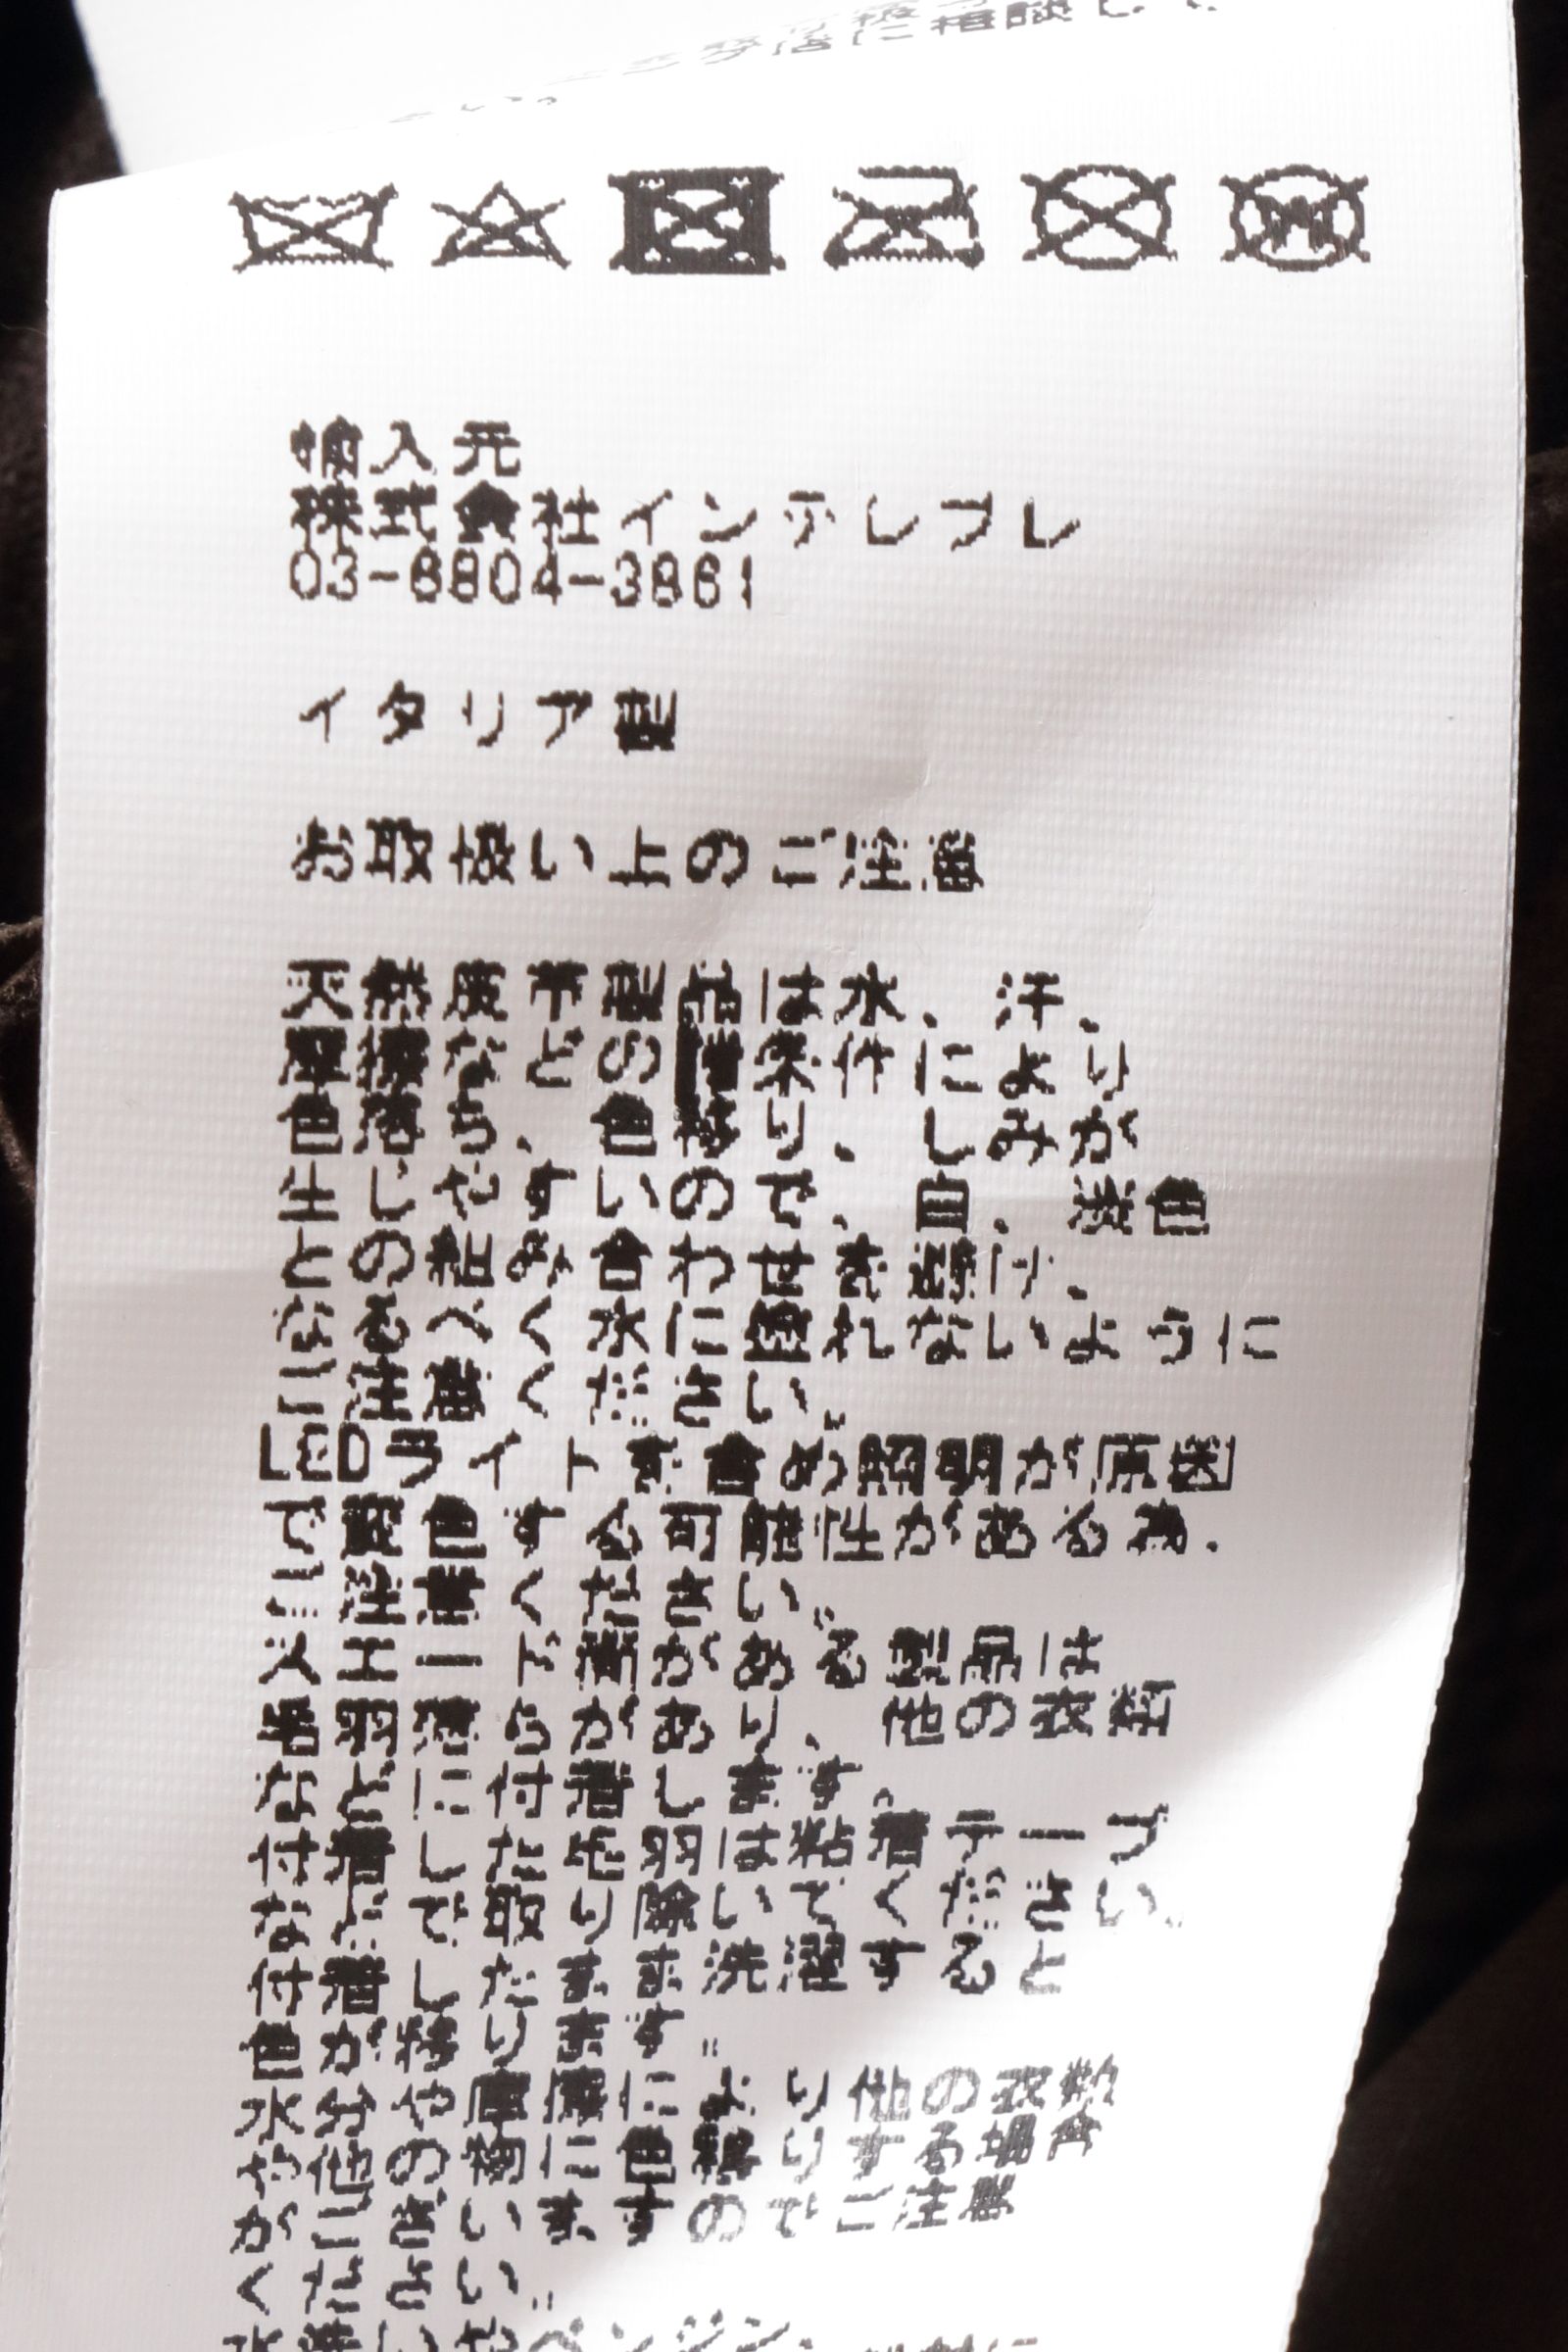 に相談し
輸入元
株式会社インテレプレ
03-6804-3861
イタリア製
お取扱い上のご注意
天然皮革製品は水、汗、
摩擦などの諸条件により
色落ち、色移り、しみが
生じやすいので、白、淡色
との組み合わせを避け、
なるべく水に濡れないように
ご注意ください。
LEDライトを含め照明が原因
で変色する可能性がある為、
ご注意ください。
スエード面がある製品は
毛羽落ちがあり、他の衣類
などに付着します。
付着した毛羽は粘着テープ
などで取り除いてください。
付着したまま洗濯すると
色が移ります。
水分や摩擦により他の衣類
や他の物に色移りする場合
がございますのでご注意
ください。